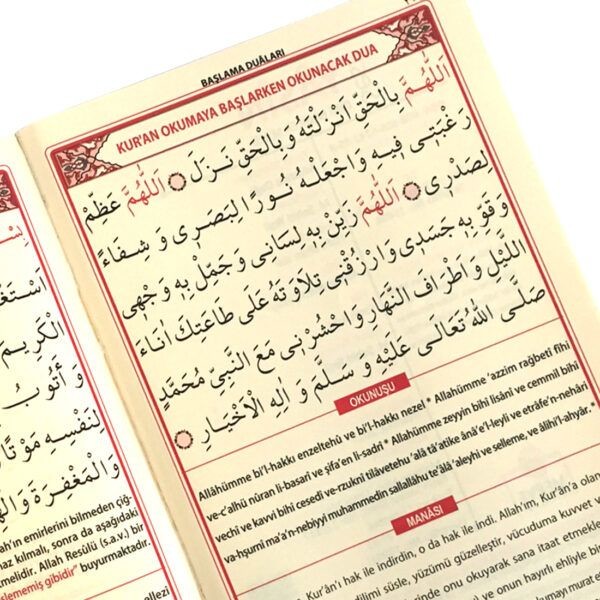 BAŞLAMA DUÂLARI
KUR'AN OKUMAYA BAŞLARKEN OKUNACAK DUA
اَللّٰهُمَّ بِالْحَقِّ اَنْزَلْتَهُ وَبِالْحَقِّ نَزَلَ ۞ اَللّٰهُمَّ عَظِّمْ
رَغْبَتٖى فٖيهِ وَاجْعَلْهُ نُورًا لِبَصَرٖى وَشِفَاءً
لِصَدْرٖى ۞ اَللّٰهُمَّ زَيِّنْ بِهٖ لِسَانٖى وَجَمِّلْ بِهٖ وَجْهٖى
وَقَوِّ بِهٖ جَسَدٖى وَارْزُقْنٖى تِلَاوَتَهُ عَلٰى طَاعَتِكَ اٰنَاءَ
الَّيْلِ وَاَطْرَافَ النَّهَارِ وَاحْشُرْنٖى مَعَ النَّبِيِّ مُحَمَّدٍ
صَلَّى اللّٰهُ تَعَالٰى عَلَيْهِ وَسَلَّمَ وَاٰلِهِ الْاَخْيَارِ ۞
OKUNUŞU
Allâhümme bi'l-hakkı enzeltehü ve bi'l-hakkı nezel * Allahümme 'azzim rağbetî fîhi
ve-c'alhü nûran li-basarî ve şifa'en li-sadrî * Allahümme zeyyin bihî lisânî ve cemmil bihî
vechî ve kavvi bihî cesedî ve-rzuknî tilâvetehu 'alâ tâ'atike ânâ'e'l-leyli ve etrâfe'n-nehâri
va-hşurnî ma'a'n-nebiyyi muhammedin sallallâhu te'âlâ 'aleyhi ve selleme, ve âlihi'l-ahyâr. *
MANÂSI
Kur'ân'ı hak ile indirdin, o da hak ile indi. Allah'ım, Kur'ân'a olan
dilimi süsle, yüzümü güzelleştir, vücuduma kuvvet v
erinde onu okuyarak sana itaat etmekle
ve onun hayırlı ehliyle bir
اَسْتَغْ
الْكَرِيمَ
وَاَتُوبُ
لِنَفْسِهٖ مَوْتًا
وَالْمَغْفِرَةَ
ah'ın emirlerini bilmeden çığ-
maz kılmalı, sonra da aşağıdaki
melidir. Allah Resûlü (s.a.v.) bir
işlememiş gibidir" buyurmaktadır.
ellezi